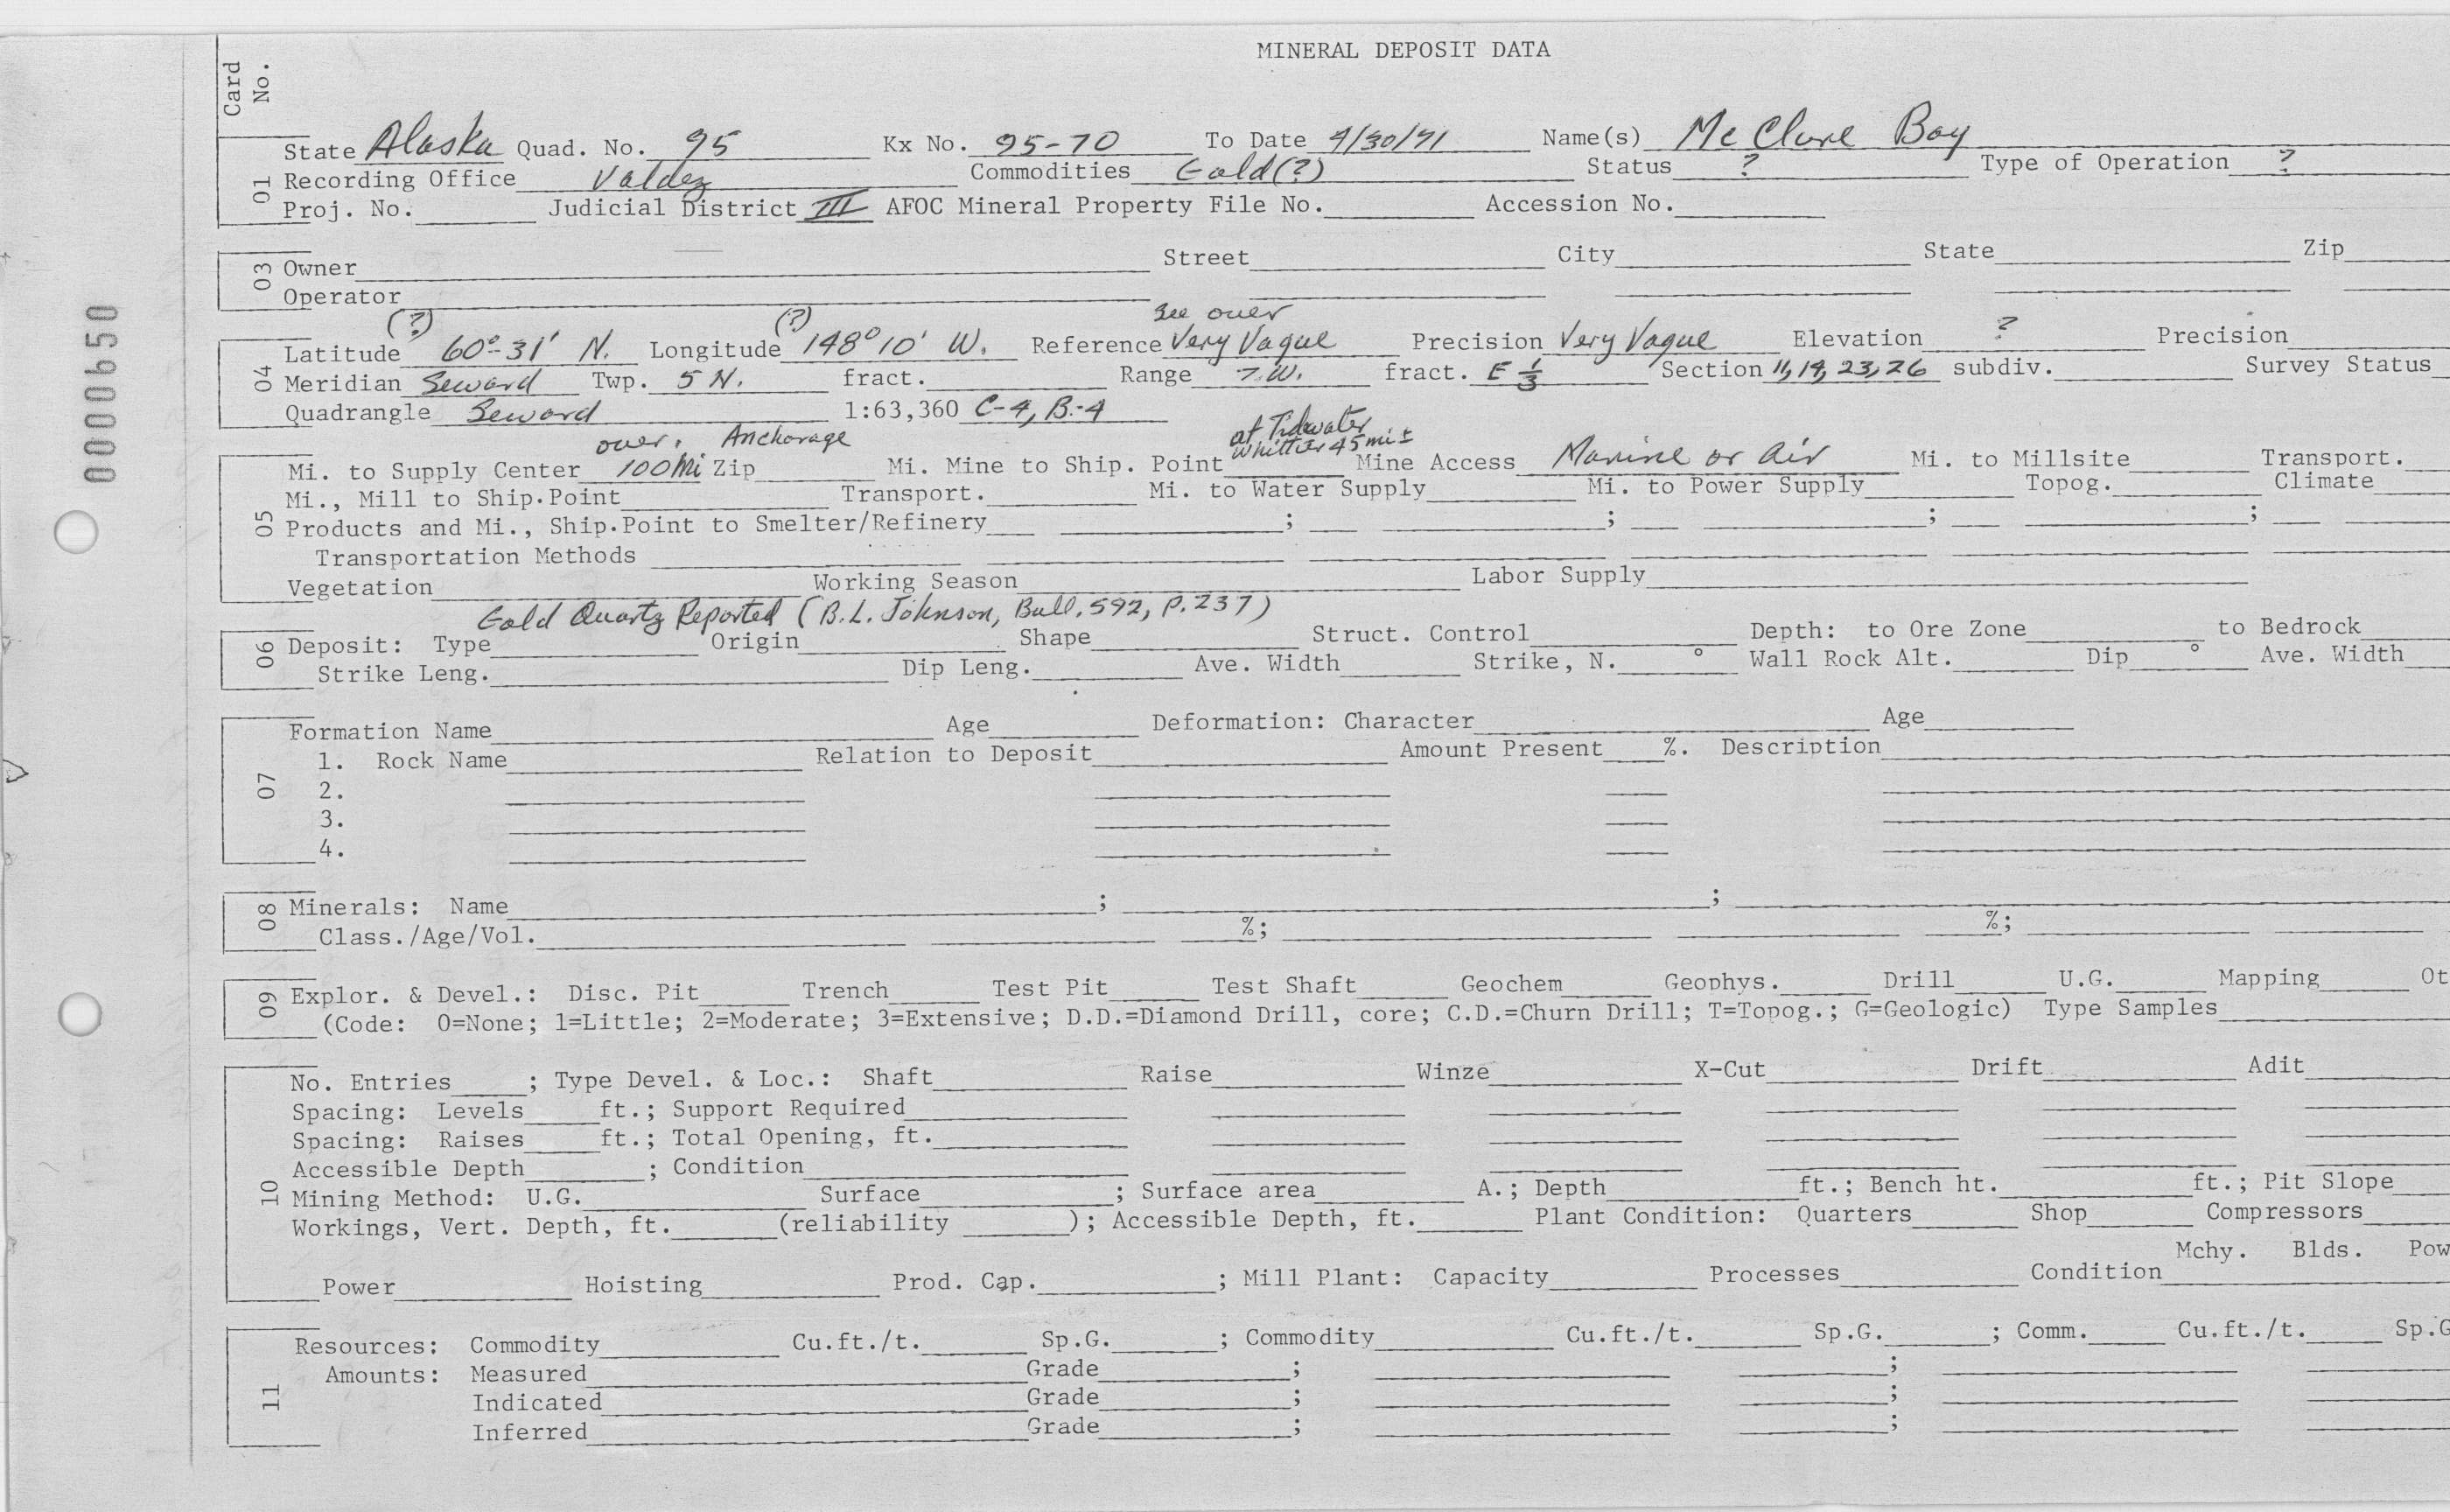 MINERAL DEPOSIT DATA
Card No.
01
State Alaska Quad. No. 95 Kx No. 95-70 To Date 4/30/71 Name(s) McClure Bay
Recording Office Valdez Commodities Gold(?) Status ? Type of Operation ?
Proj. No. Judicial District III AFOC Mineral Property File No. Accession No.
03
Owner Street City State Zip
Operator
000b50
(?) (?) See over
04
Latitude 60°-31' N. Longitude 148°10' W. Reference Very Vague Precision Very Vague Elevation ? Precision
Meridian Seward Twp. 5 N. fract. Range 7.W. fract. E 1/3 Section 11, 14, 23, 26 subdiv. Survey Status
Quadrangle Seward 1:63,360 C-4, B-4
over. Anchorage at Tidewater
Whittier 45mi±
05
Mi. to Supply Center 100Mi Zip Mi. Mine to Ship. Point Mine Access Marine or Air Mi. to Millsite Transport.
Mi., Mill to Ship.Point Transport. Mi. to Water Supply Mi. to Power Supply Topog. Climate
Products and Mi., Ship.Point to Smelter/Refinery ; ; ; ;
Transportation Methods
Vegetation Working Season Labor Supply
Gold Quartz Reported (B.L. Johnson, Bull. 592, P. 237)
06
Deposit: Type Origin Shape Struct. Control Depth: to Ore Zone to Bedrock
Strike Leng. Dip Leng. Ave. Width Strike, N. ° Wall Rock Alt. Dip ° Ave. Width
07
Formation Name Age Deformation: Character Age
1. Rock Name Relation to Deposit Amount Present %. Description
2.
3.
4.
08
Minerals: Name ; ;
Class./Age/Vol. %; %;
09
Explor. & Devel.: Disc. Pit Trench Test Pit Test Shaft Geochem Geophys. Drill U.G. Mapping Ot
(Code: 0=None; 1=Little; 2=Moderate; 3=Extensive; D.D.=Diamond Drill, core; C.D.=Churn Drill; T=Topog.; G=Geologic) Type Samples
10
No. Entries ; Type Devel. & Loc.: Shaft Raise Winze X-Cut Drift Adit
Spacing: Levels ft.; Support Required
Spacing: Raises ft.; Total Opening, ft.
Accessible Depth ; Condition
Mining Method: U.G. Surface ; Surface area A.; Depth ft.; Bench ht. ft.; Pit Slope
Workings, Vert. Depth, ft. (reliability ); Accessible Depth, ft. Plant Condition: Quarters Shop Compressors
Mchy. Blds. Pow
Power Hoisting Prod. Cap. ; Mill Plant: Capacity Processes Condition
11
Resources: Commodity Cu.ft./t. Sp.G. ; Commodity Cu.ft./t. Sp.G. ; Comm. Cu.ft./t. Sp.G
Amounts: Measured Grade ; ;
Indicated Grade ; ;
Inferred Grade ; ;